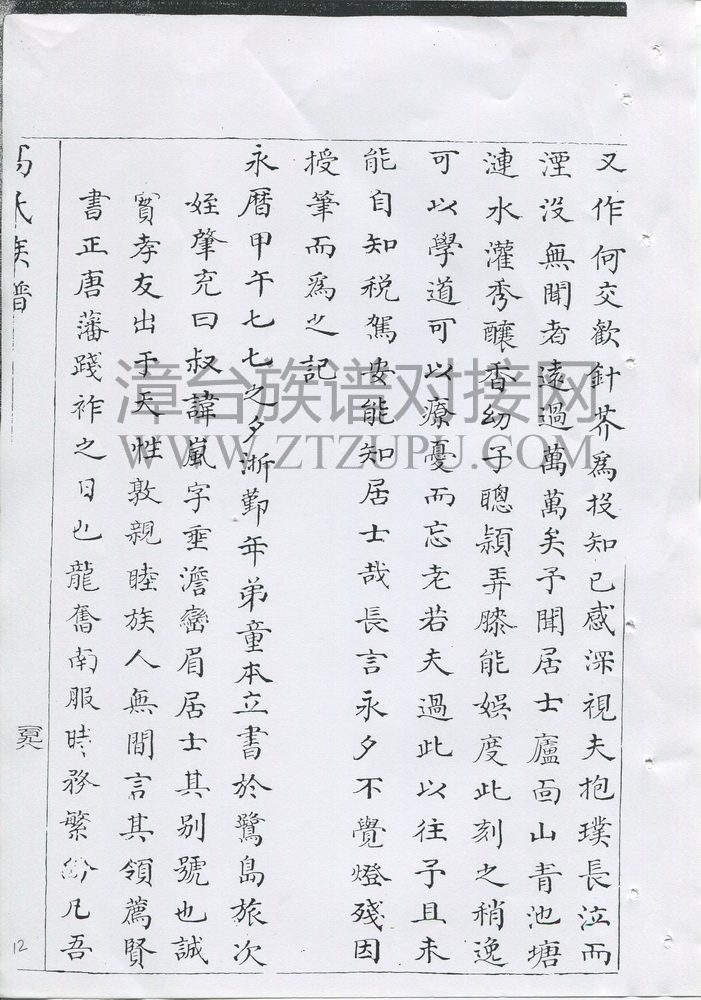 又作何交歡針芥為投知已感深視夫抱璞長泣而
湮沒無聞者遠過萬萬矣予聞居士廬面山青池塘
漣水灌秀釀香幼子聰頴弄膝能娛度此刻之稍逸
可以學道可以療憂而忘老若夫過此以往予且未
能自知税駕安能知居士哉長言永夕不覺燈殘因
授筆而為之記
永曆甲午七七之夕浙鄞年弟童本立書於鷺島旅次
姪肇充曰叔諱嵐字垂澹巒眉居士其别號也誠
實孝友出于天性敦親睦族人無間言其領薦賢
書正唐藩踐祚之日也龍奮南服時務繁紛凡吾
氏族譜
12
漳台族谱对接网
WWW.ZTZUPU.COM